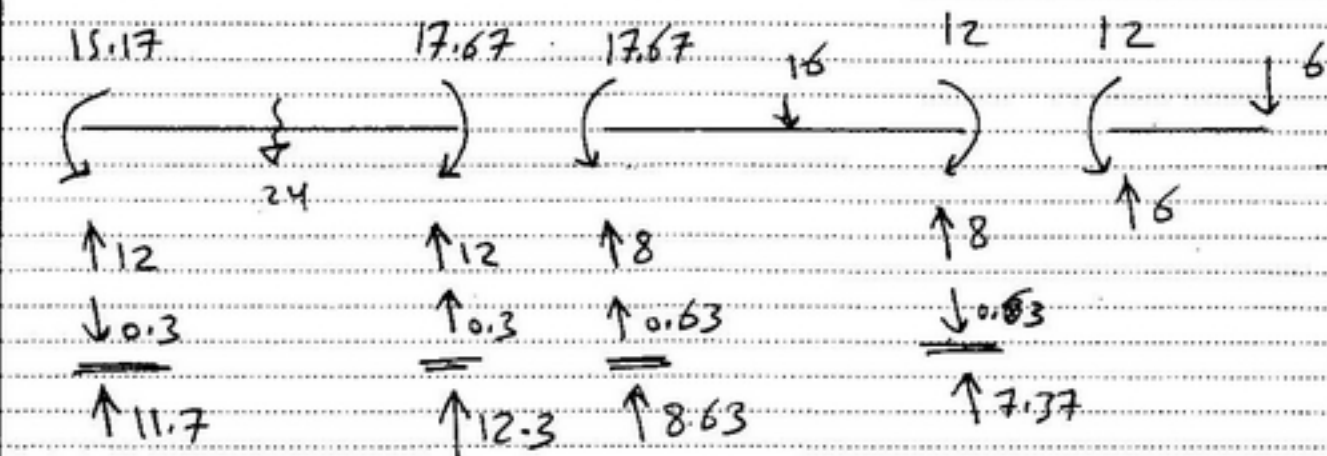 15.17 17.67 17.67 16 12 12 6
24
↑12 ↑12 ↑8 ↑8 ↑6
↓0.3 ↑0.3 ↑0.63 ↓0.63
↑11.7 ↑12.3 ↑8.63 ↑7.37